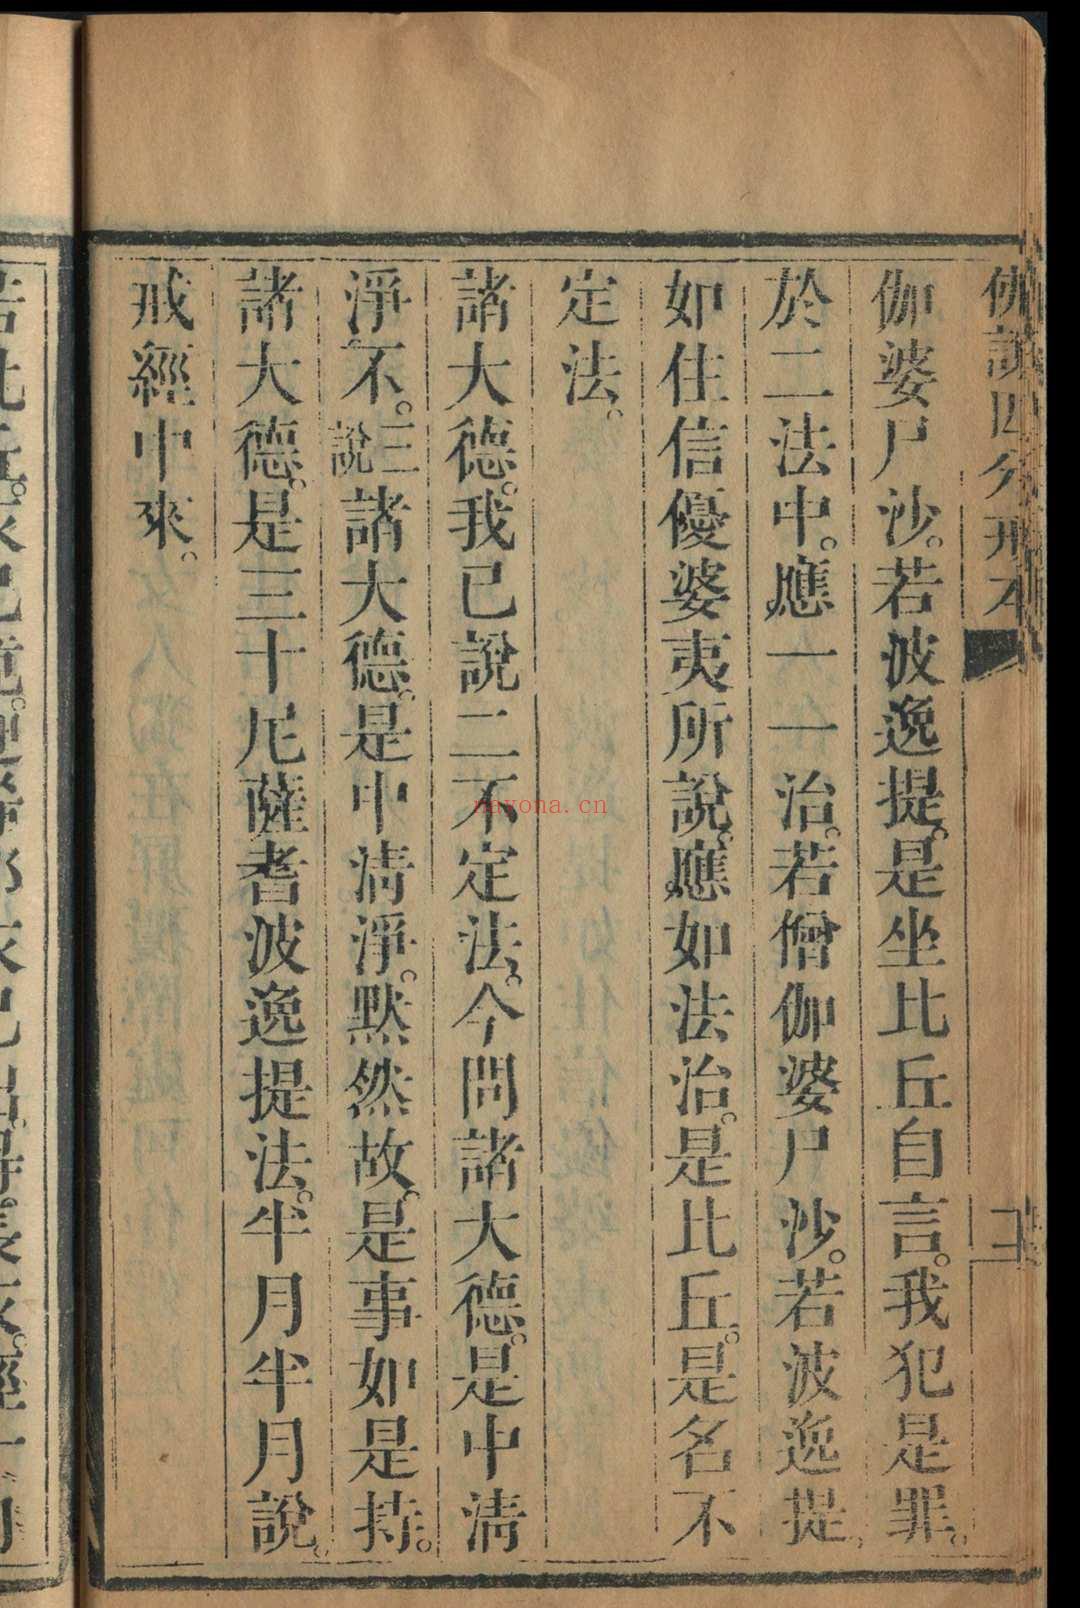 佛說四分戒本
伽婆尸沙。若波逸提。是坐比丘自言。我犯是罪。
於二法中。應一一治。若僧伽婆尸沙。若波逸提。
如住信優婆夷所說。應如法治。是比丘。是名不
定法。
諸大德。我已說二不定法。今問諸大德。是中清
淨不。三說諸大德。是中清淨。默然故。是事如是持。
諸大德。是三十尼薩耆波逸提法。半月半月說。
戒經中來。
nayona.cn